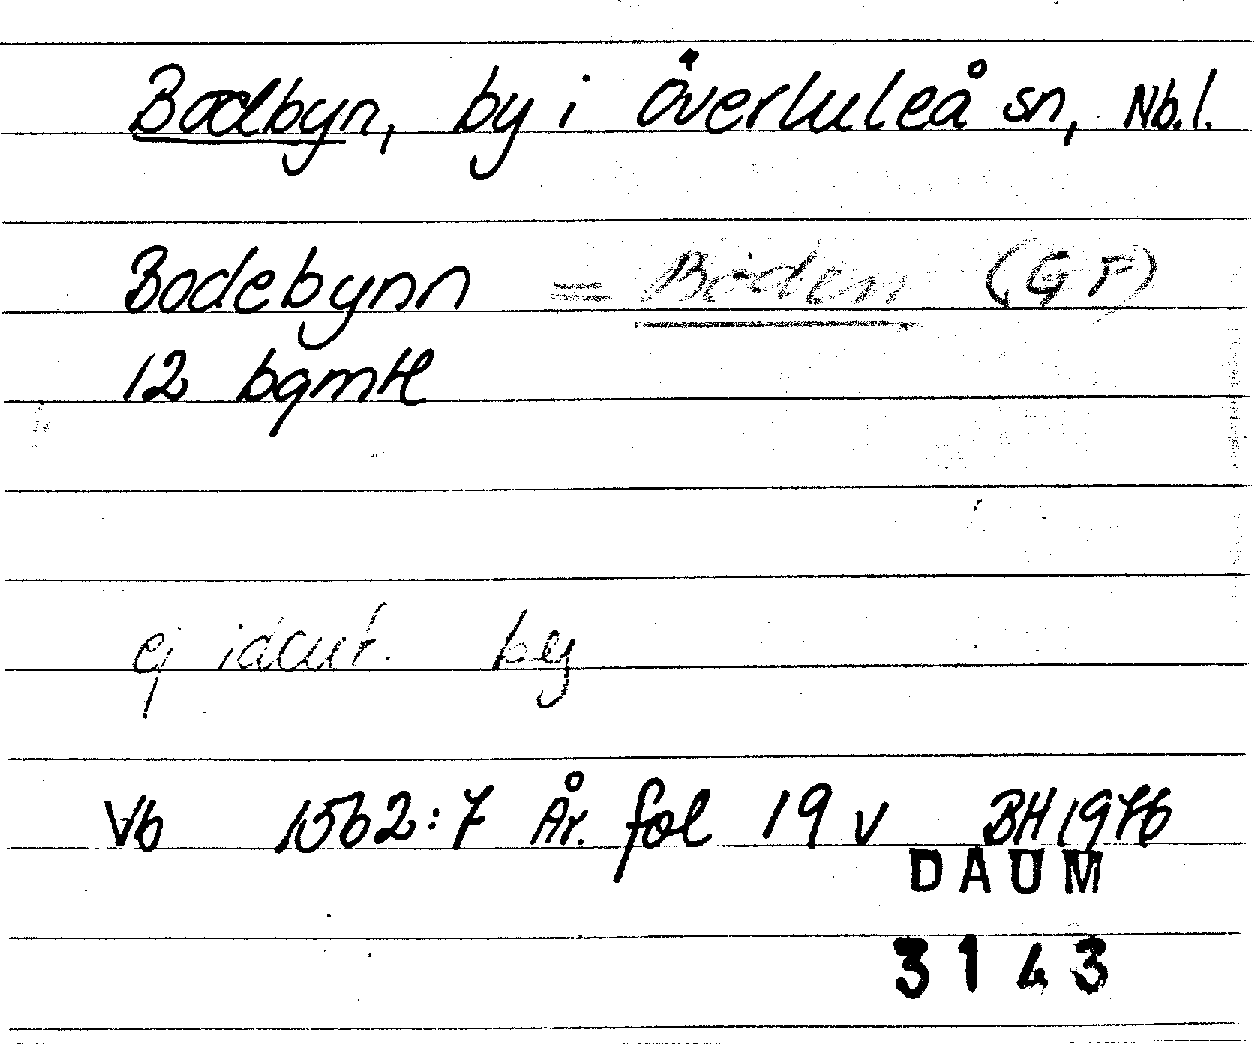 Bodbyn, by i Överluleå sn, Nb.l.
Bodebynn = Boden (GF)
12 bgmtl
ej ident. by
Vb 1562:7 År. fol 19 v BH 1976
DAUM
3143